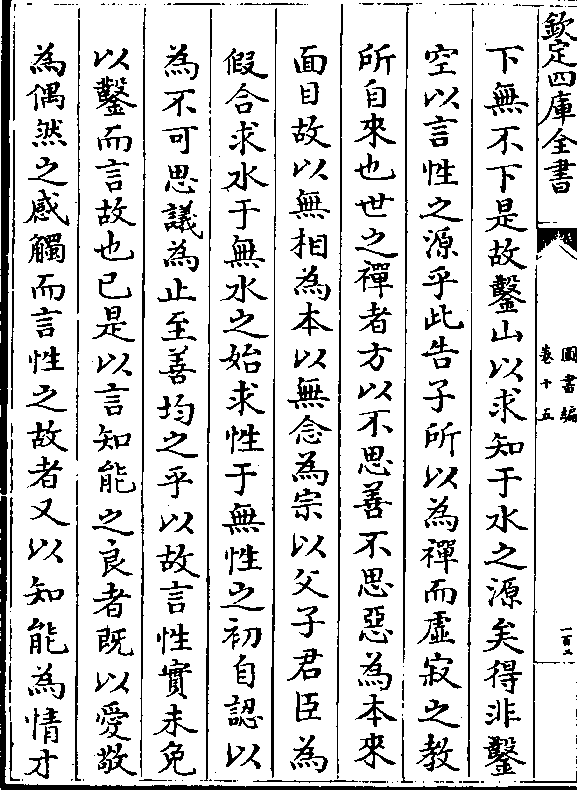 欽定四庫全書
圖書編
卷十五
下無不下是故鑿山以求知于水之源矣得非鑿
空以言性之源乎此告子所以為禪而虛寂之教
所自來也世之禪者方以不思善不思惡為本來
面目故以無相為本以無念為宗以父子君臣為
假合求水于無水之始求性于無性之初自認以
為不可思議為止至善均之乎以故言性實未免
以鑿而言故也已是以言知能之良者既以愛敬
為偶然之感觸而言性之故者又以知能為情才